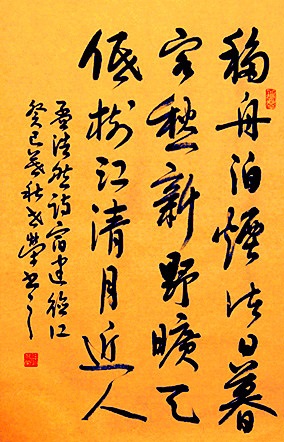 移舟泊煙渚日暮
客愁新野曠天
低樹江清月近人
孟浩然詩宿建德江
癸巳暮秋榮書